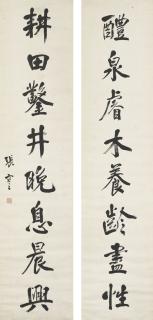 醴泉膚木養齡盡性
耕田鑿井晚息晨興
張